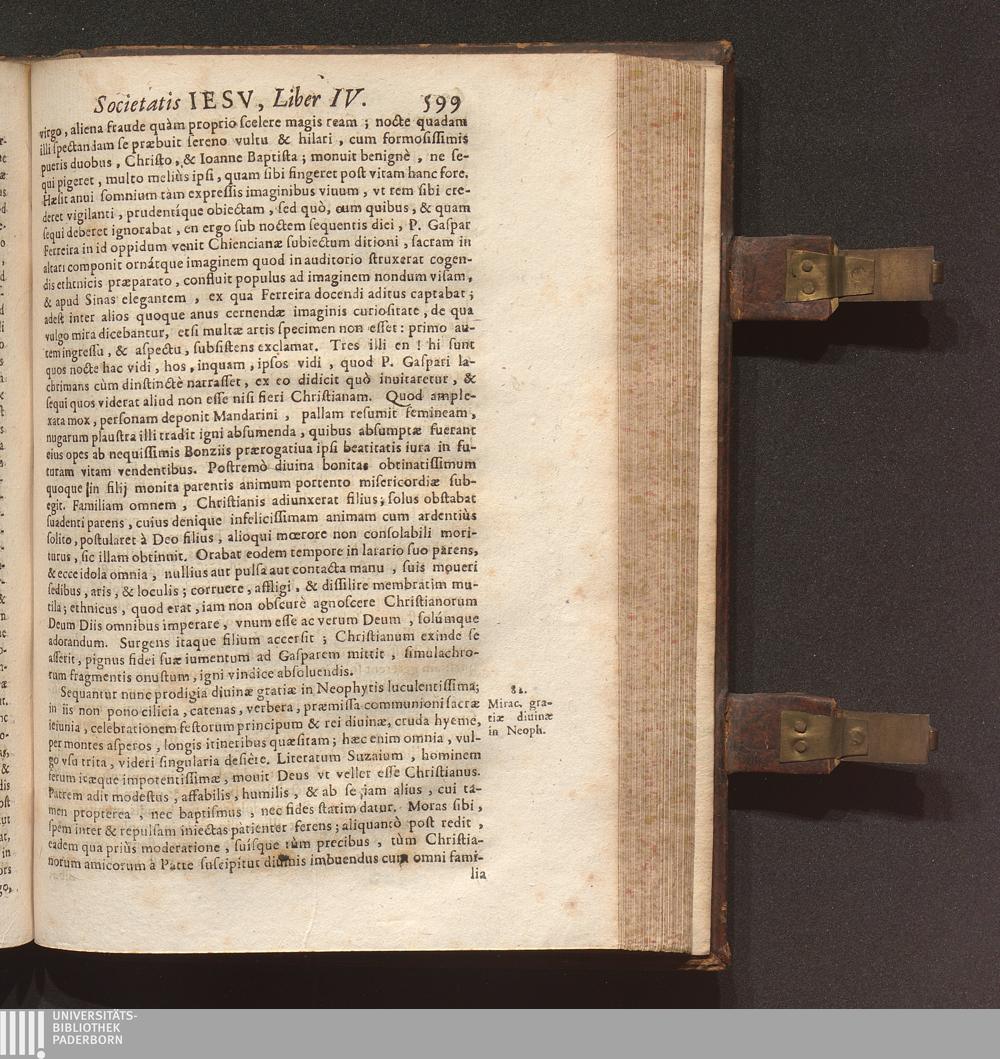 Societatis IESV, Liber IV. 599
virgo, aliena fraude quàm proprio scelere magis ream; nocte quadam
illi spectandam se præbuit sereno vultu & hilari, cum formosissimis
pueris duobus, Christo, & Ioanne Baptista; monuit benignè, ne se-
qui pigeret, multo meliùs ipsi, quam sibi fingeret post vitam hanc fore.
Hæsit anui somnium tàm expressis imaginibus viuum, vt rem sibi cre-
deret vigilanti, prudentíque obiectam, sed quò, cum quibus, & quam
sequi deberet ignorabat, en ergo sub noctem sequentis diei, P. Gaspar
Ferreira in id oppidum venit Chiencianæ subiectum ditioni, sacram in
altari componit ornátque imaginem quod in auditorio struxerat cogen-
dis ethnicis præparato, confluit populus ad imaginem nondum visam,
& apud Sinas elegantem, ex qua Ferreira docendi aditus captabat;
adest inter alios quoque anus cernendæ imaginis curiositate, de qua
vulgo mira dicebantur, etsi multæ artis specimen non esset: primo au-
tem ingressu, & aspectu, subsistens exclamat. Tres illi en! hi sunt
quos nocte hac vidi, hos, inquam, ipsos vidi, quod P. Gaspari la-
chrimans cùm dinstinctè narrasset, ex eo didicit quò inuitaretur, &
sequi quos viderat aliud non esse nisi fieri Christianam. Quod ample-
xata mox, personam deponit Mandarini, pallam resumit femineam,
nugarum plaustra illi tradit igni absumenda, quibus absumptæ fuerant
eius opes ab nequissimis Bonziis prærogatiua ipsi beatitatis iura in fu-
turam vitam vendentibus. Postremò diuina bonitas obtinatissimum
quoque in filij monita parentis animum portento misericordiæ sub-
egit. Familiam omnem, Christianis adiunxerat filius; solus obstabat
suadenti parens, cuius denique infelicissimam animam cum ardentiùs
solito, postularet à Deo filius, alioqui mœrore non consolabili mori-
turus, sic illam obtinuit. Orabat eodem tempore in larario suo parens,
& ecce idola omnia, nullius aut pulsa aut contacta manu, suis moueri
sedibus, aris, & loculis; corruere, affligi, & dissilire membratim mu-
tila; ethnicus, quod erat, iam non obscurè agnoscere Christianorum
Deum Diis omnibus imperare, vnum esse ac verum Deum, solúmque
adorandum. Surgens itaque filium accersit; Christianum exinde se
asserit, pignus fidei suæ iumentum ad Gasparem mittit, simulachro-
rum fragmentis onustum, igni vindice absoluendis.
Sequantur nunc prodigia diuinæ gratiæ in Neophytis luculentissima;
in iis non pono cilicia, catenas, verbera, præmissa communioni sacræ
ieiunia, celebrationem festorum principum & rei diuinæ, cruda hyeme,
per montes asperos, longis itineribus quæsitam; hæc enim omnia, vul-
go vsu trita, videri singularia desière. Literatum Suzaium, hominem
ferum iræque impotentissimæ, mouit Deus vt vellet esse Christianus.
Patrem adit modestus, affabilis, humilis, & ab se iam alius, cui ta-
men propterea, nec baptismus, nec fides statim datur. Moras sibi,
spem inter & repulsam iniectas patienter ferens; aliquantò post redit,
eadem qua priùs moderatione, suísque tùm precibus, tùm Christia-
norum amicorum à Patre suscipitur diuinis imbuendus cum omni fami-
lia
82.
Mirac. gra-
tiæ diuinæ
in Neoph.
UNIVERSITÄTS-
BIBLIOTHEK
PADERBORN